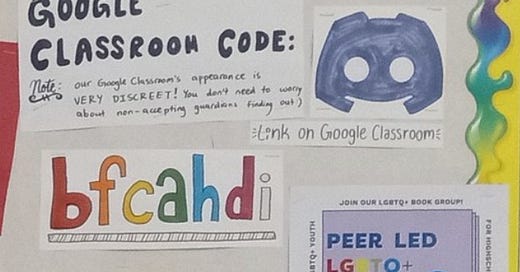 GOOGLE
CLASSROOM CODE:
Note: our Google Classroom's appearance is
VERY DISCREET! (You don't need to worry
about non-accepting guardians finding out)
Link on Google Classroom
bfcahdi
JOIN OUR LGBTQ+ BOOK GROUP!
LGBTQ+ YOUTH
PEER LED
LGBTQ+
FOR HIGHSCH